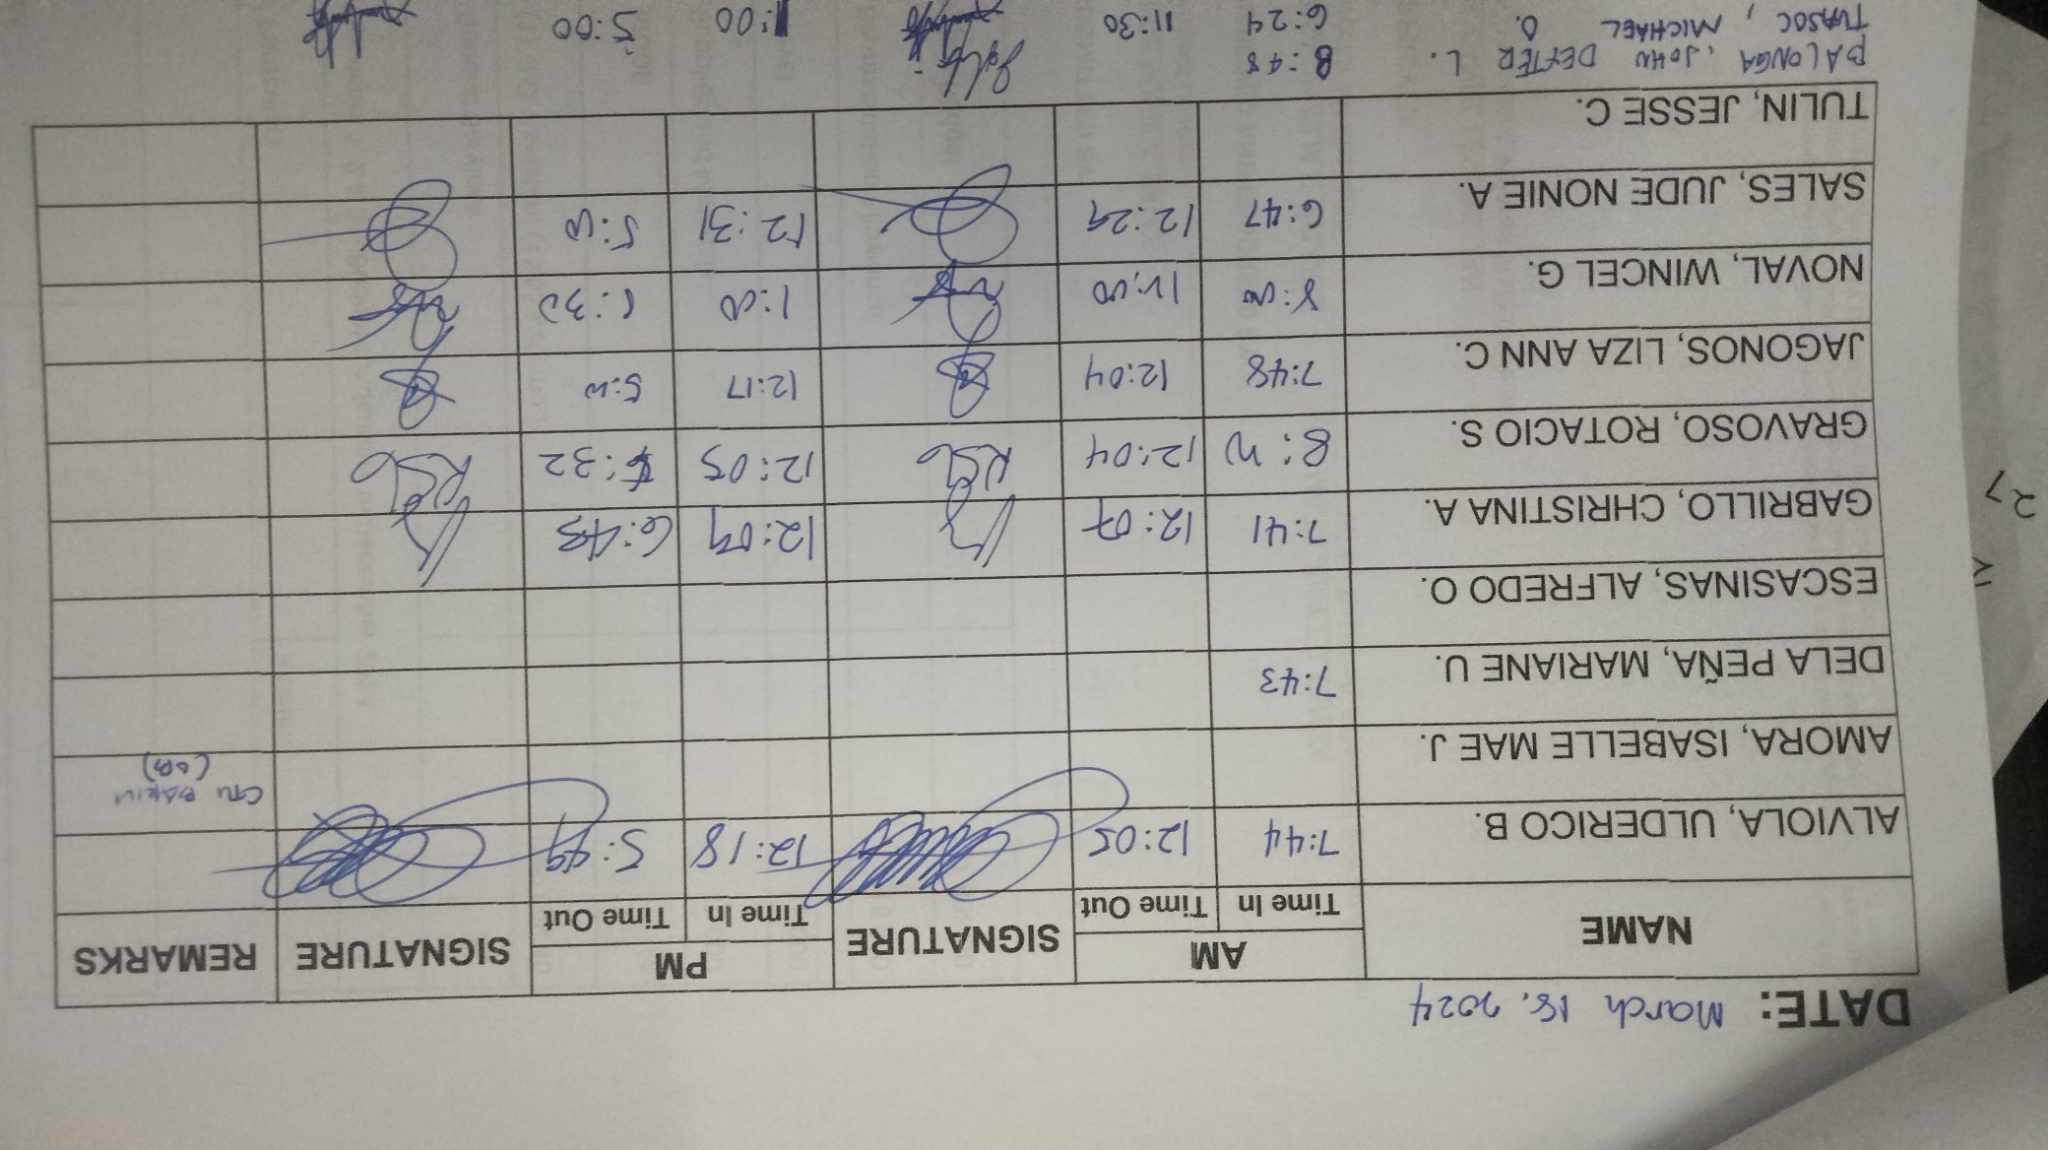 DATE: March 18, 2024
NAME AM SIGNATURE PM SIGNATURE REMARKS
Time In Time Out Time In Time Out
ALVIOLA, ULDERICO B. 7:44 12:05 12:18 5:49
AMORA, ISABELLE MAE J. CTU
DELA PEÑA, MARIANE U. 7:43
ESCASINAS, ALFREDO O.
GABRILLO, CHRISTINA A. 7:41 12:07 12:09 6:43
GRAVOSO, ROTACIO S. 12:04 12:05 6:32
JAGONOS, LIZA ANN C. 7:48 12:04 12:17 5:00
NOVAL, WINCEL G. 8:00 12:00 1:00
SALES, JUDE NONIE A. 6:47 12:29 12:31 5:00
TULIN, JESSE C.
BALONGA, JOHN DEXTER L. 8:48
TUASOC, MICHAEL O. 6:24 11:30 1:00 5:00
27